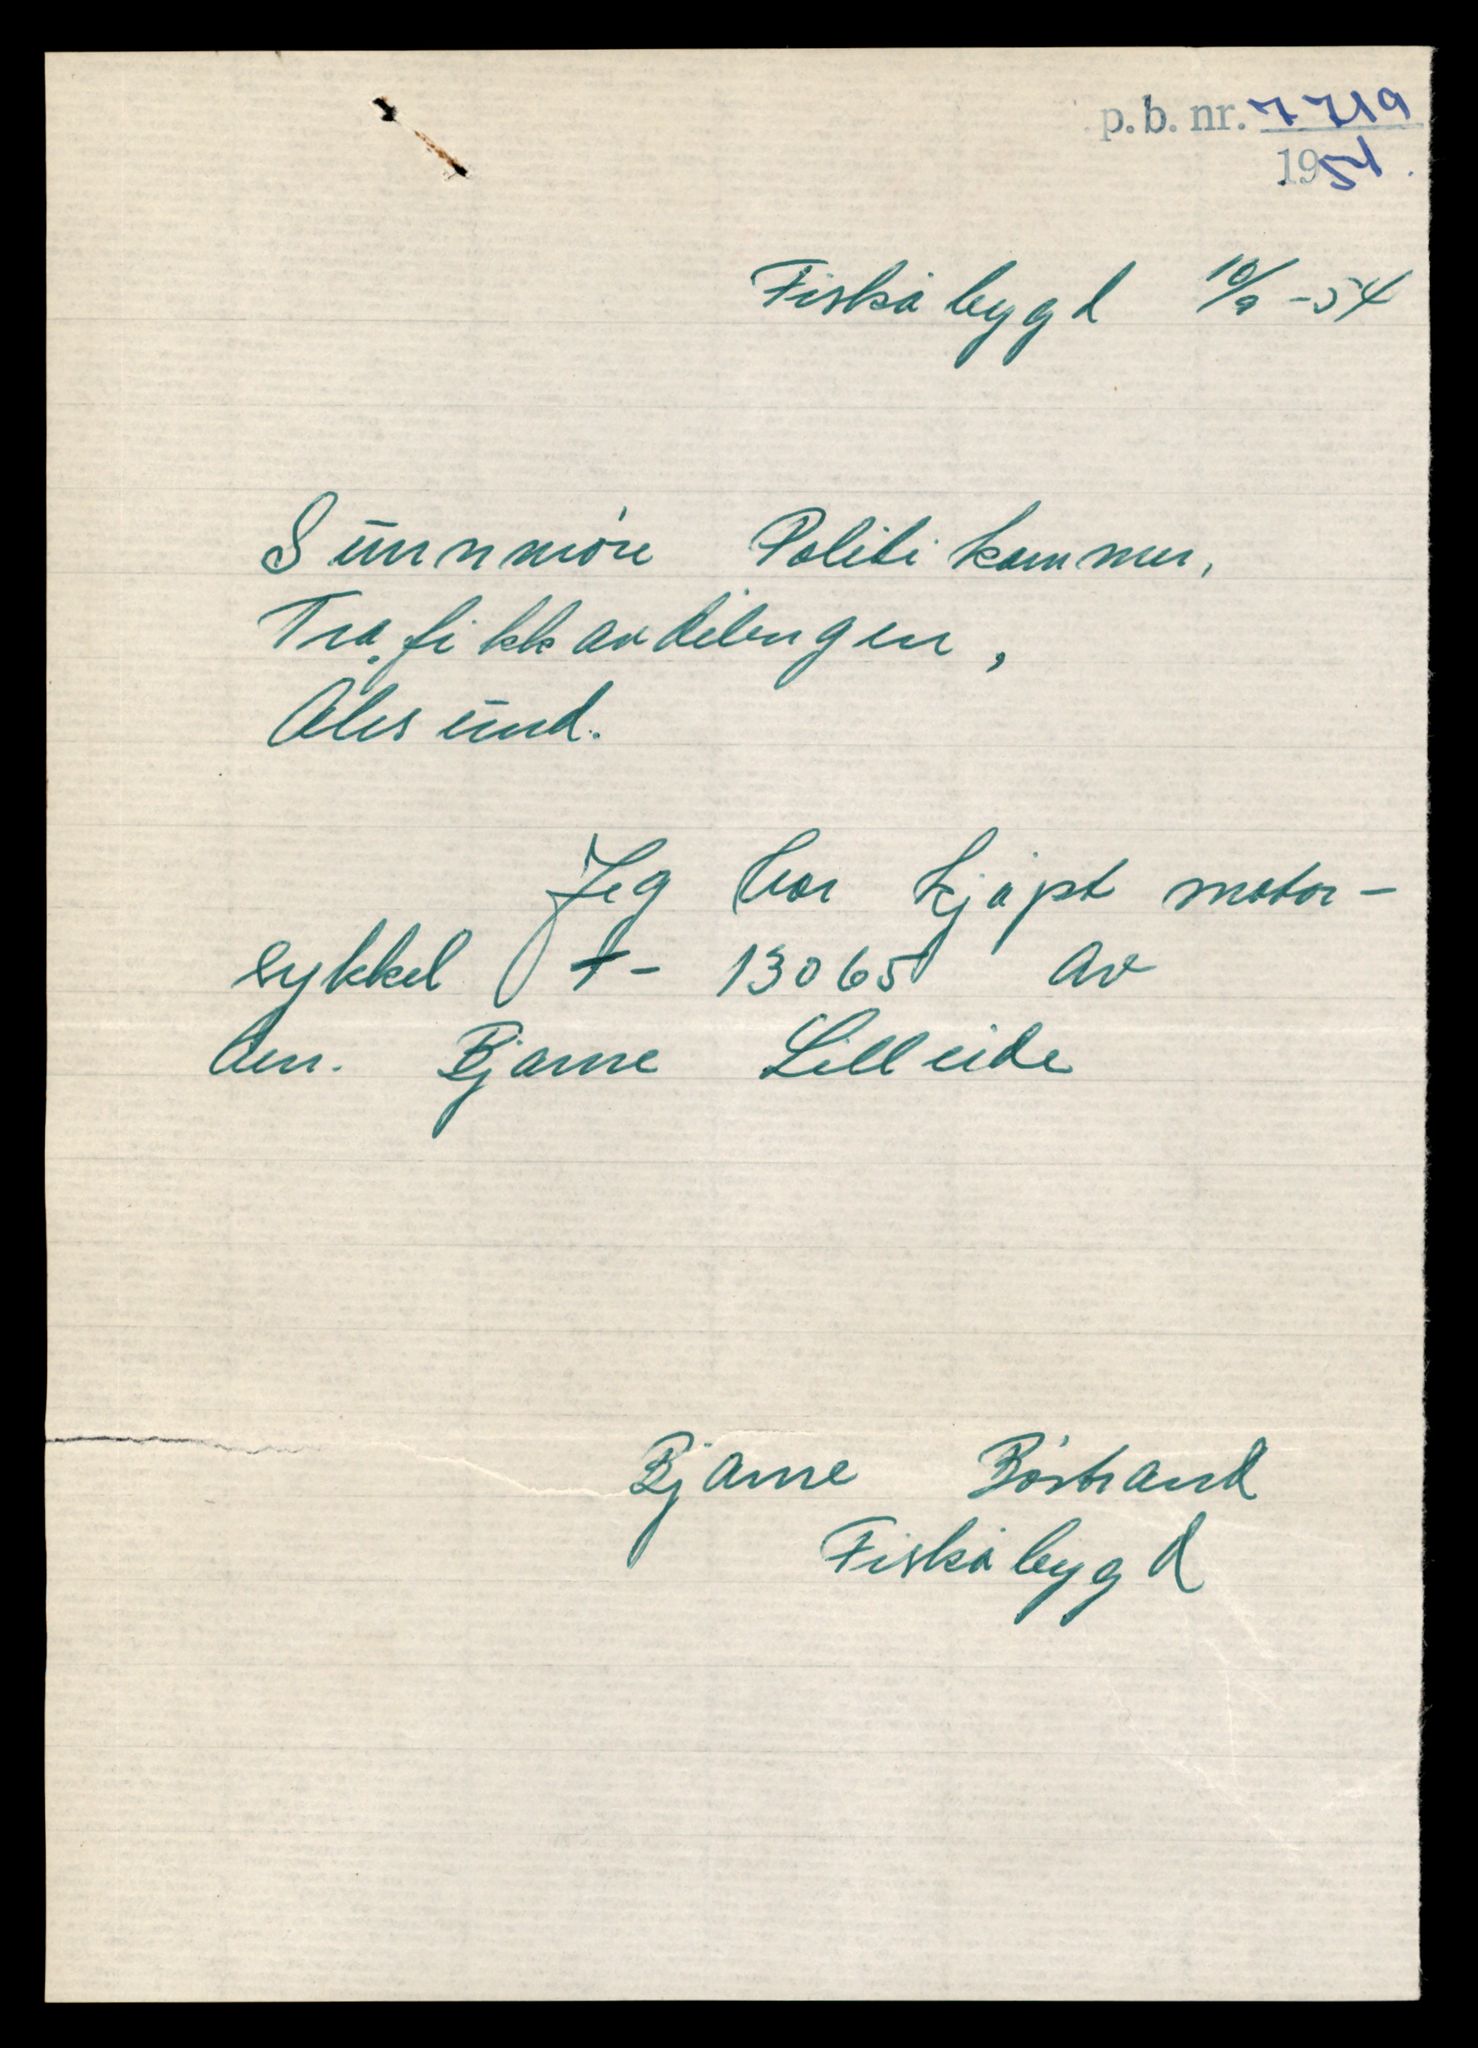 p.b. nr. 7719
1954.
Fiskåbygd 10/9 -54
Sunnmöre Politikammer,
Trafikkavdelingen,
Ålesund.
Jeg har kjøpt motor-
sykkel T- 13065 av
herr. Bjarne Lilleeide
Bjarne Böstrand
Fiskåbygd